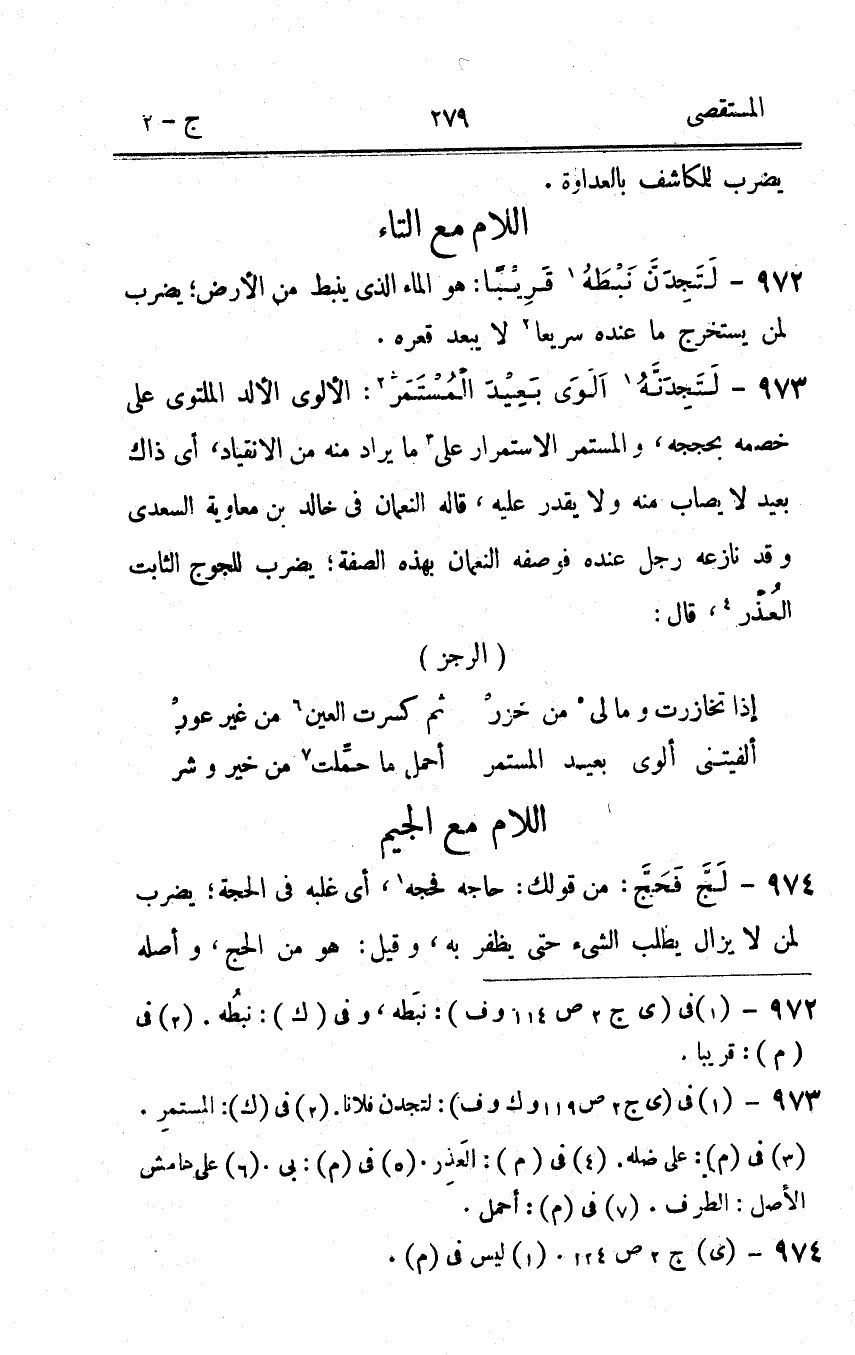 المستقصى ٢٧٩ ج - ٢
يضرب للكاشف بالعداوة .
اللام مع التاء
٩٧٢ - لَتَجِدَنَّ نَبْطَهُ ١ قَرِيْبًا : هو الماء الذى ينبط من الأرض؛ يضرب
لمن يستخرج ما عنده سريعا ٢ لا يبعد قعره .
٩٧٣ - لَتَجِدَنَّهُ ١ اَلْوَى بَعِيْدَ الْمُسْتَمَرِّ ٢ : الألوى الألد الملتوى على
خصمه بحججه، و المستمر الاستمرار على ٣ ما يراد منه من الانقياد، أى ذاك
بعيد لا يصاب منه و لا يقدر عليه، قاله النعمان فى خالد بن معاوية السعدى
و قد نازعه رجل عنده فوصفه النعمان بهذه الصفة؛ يضرب للجوج الثابت
العُذْر ٤ ، قال :
( الرجز )
إذا تخازرت و ما لى ٥ من خزرْ ثم كسرت العين ٦ من غير عورْ
ألفيتنى ألوى بعيد المستمر أحمل ما حمَّلت ٧ من خير و شر
اللام مع الجيم
٩٧٤ - لَجَّ فَحَجَّ : من قولك : حاجه فحجه ١ ، أى غلبه فى الحجة؛ يضرب
لمن لا يزال يطلب الشىء حتى يظفر به، و قيل : هو من الحج، و أصله
٩٧٢ - (١) فى ( ى ج ٢ ص ١١٤ و ف ) : نبَطه، و فى ( ك ) : نبطُه . (٢) فى
( م ) : قريبا .
٩٧٣ - (١) فى (ى ج ٢ ص ١١٩ و ك و ف) : لتجدن فلانا. (٢) فى (ك): المستمرِ .
(٣) فى (م): على ضله. (٤) فى ( م ) : العَذِر . (٥) فى (م) : بى . (٦) على هامش
الأصل : الطرف . (٧) فى (م) : أحمل .
٩٧٤ - (ى) ج ٢ ص ١٢٤ . (١) ليس فى (م) .